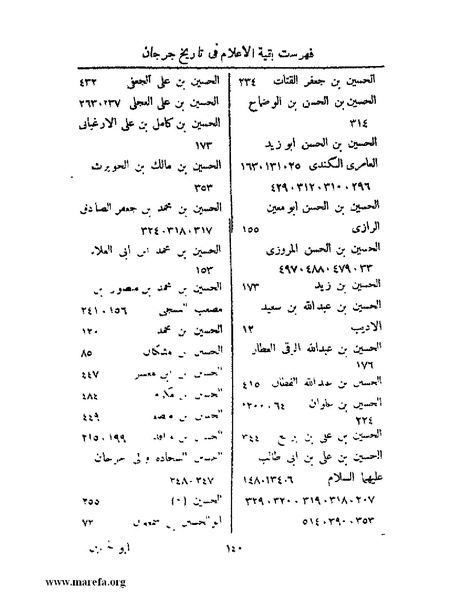 فهرست بقية الاعلام فى تاريخ جرجان
الحسين بن جعفر القتات ٢٣٤
الحسين بن الحسن بن الوضاح
٣١٤
الحسين بن الحسن ابو زيد
العامرى الكندى ٠٢٥ ١٣١٠ ١٦٣٠
٢٩٦ ٣١٠٠ ٣١٢٠ ٤٢٩٠
الحسين بن الحسن ابو معين
الرازى ١٥٥
الحسين بن الحسن المروزى
٠٣٣ ٤٧٩٠ ٤٨٨٠ ٤٩٧٠
الحسين بن زيد ١٧٣
الحسين بن عبدالله بن سعيد
الاديب ١٢
الحسين بن عبدالله الرقى العطار
١٧٦
الحسين بن عبدالله القطان ٤١٥
الحسين بن علوان ٠٦٤
٢٢٤
الحسين بن على بن ٣٤٤
الحسين بن على بن ابى طالب
عليهما السلام ١٣٤٠٦ ١٤٨٠
٢٠٧ ٣١٨٠ ٣١٩٠ ٣٢٠٠ ٣٢٩٠
٣٥٣ ٣٩٠٠ ٥١٤٠
الحسين بن على الجعفى ٤٣٢
الحسين بن على العجلى ٢٣٧ ٢٦٣٠
الحسين بن كامل بن على الارغيانى
١٧٣
الحسين بن مالك بن الحويرث
٣٥٣
الحسين بن محمد بن جعفر الصادق
٣١٧ ٣١٨٠ ٣٢٤٠
الحسين بن محمد بن ابى العلاء
١٥٣
الحسين بن محمد بن منصور بن
مصعب ١٥٦ ٢٤١٠
الحسين بن محمد ١٢٠
الحسين بن مشكان ٨٥
الحسين بن ابى معشر ٤٤٧
الحسين بن ٤٨٤
الحسين بن ٤٤٩
الحسين بن ١٩٩ ٢١٥٠
الحسين السجاده والى جرجان
٣٤٧ ٣٤٨٠
الحسين ٣٥٥
ابو الحسين بن سمعون ٧٢
١٤٠
ابو
www.marefa.org